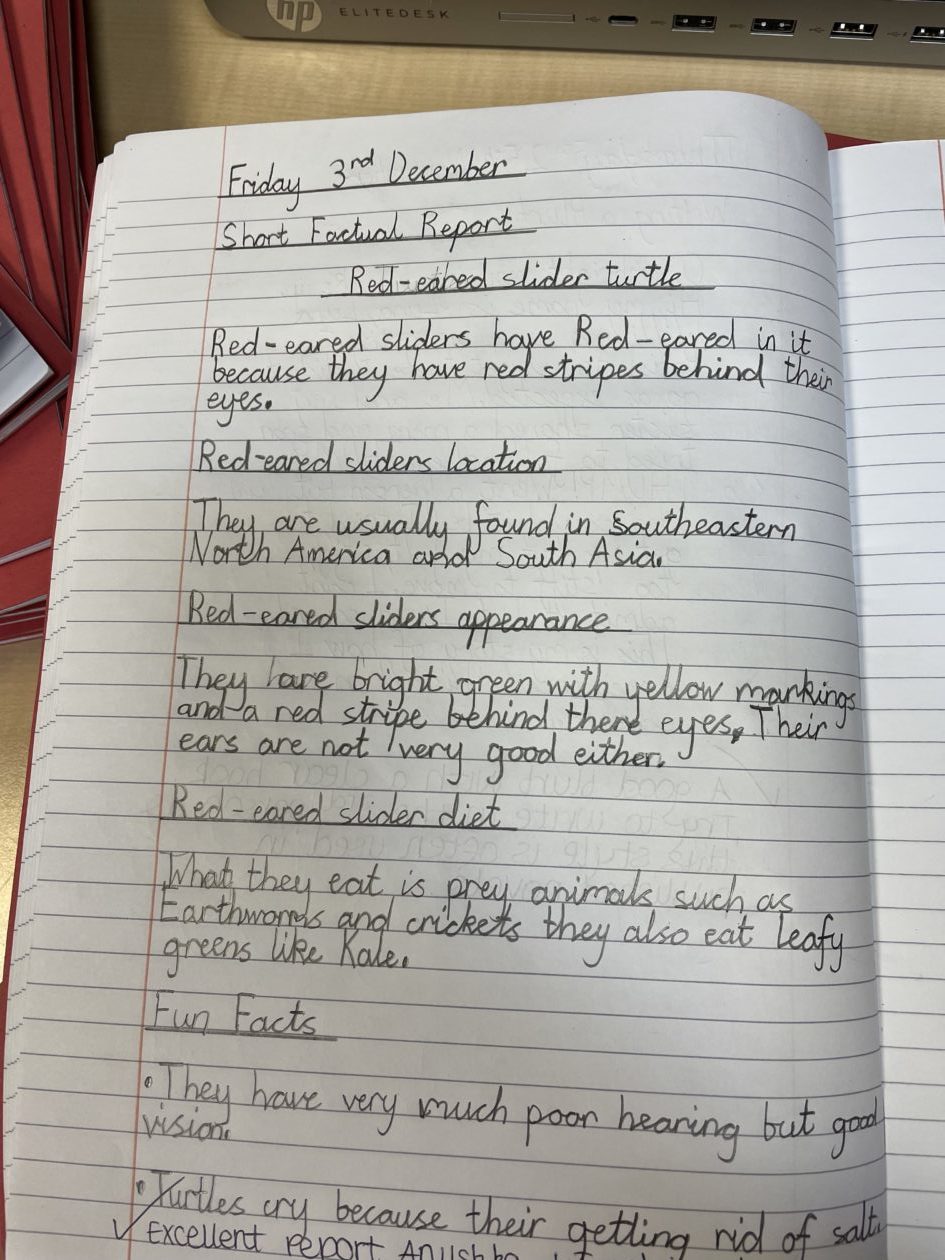 hp ELITEDESK
Friday 3rd December
Short Factual Report
Red-eared slider turtle
Red-eared sliders have Red-eared in it
because they have red stripes behind their
eyes.
Red-eared sliders location
They are usually found in Southeastern
North America and South Asia.
Red-eared sliders appearance
They are bright green with yellow markings
and a red stripe behind there eyes. Their
ears are not very good either.
Red-eared slider diet
What they eat is prey animals such as
Earthworms and crickets they also eat leafy
greens like Kale.
Fun Facts
• They have very much poor hearing but good
vision.
• Turtles cry because their getting rid of salt.
✓ Excellent report